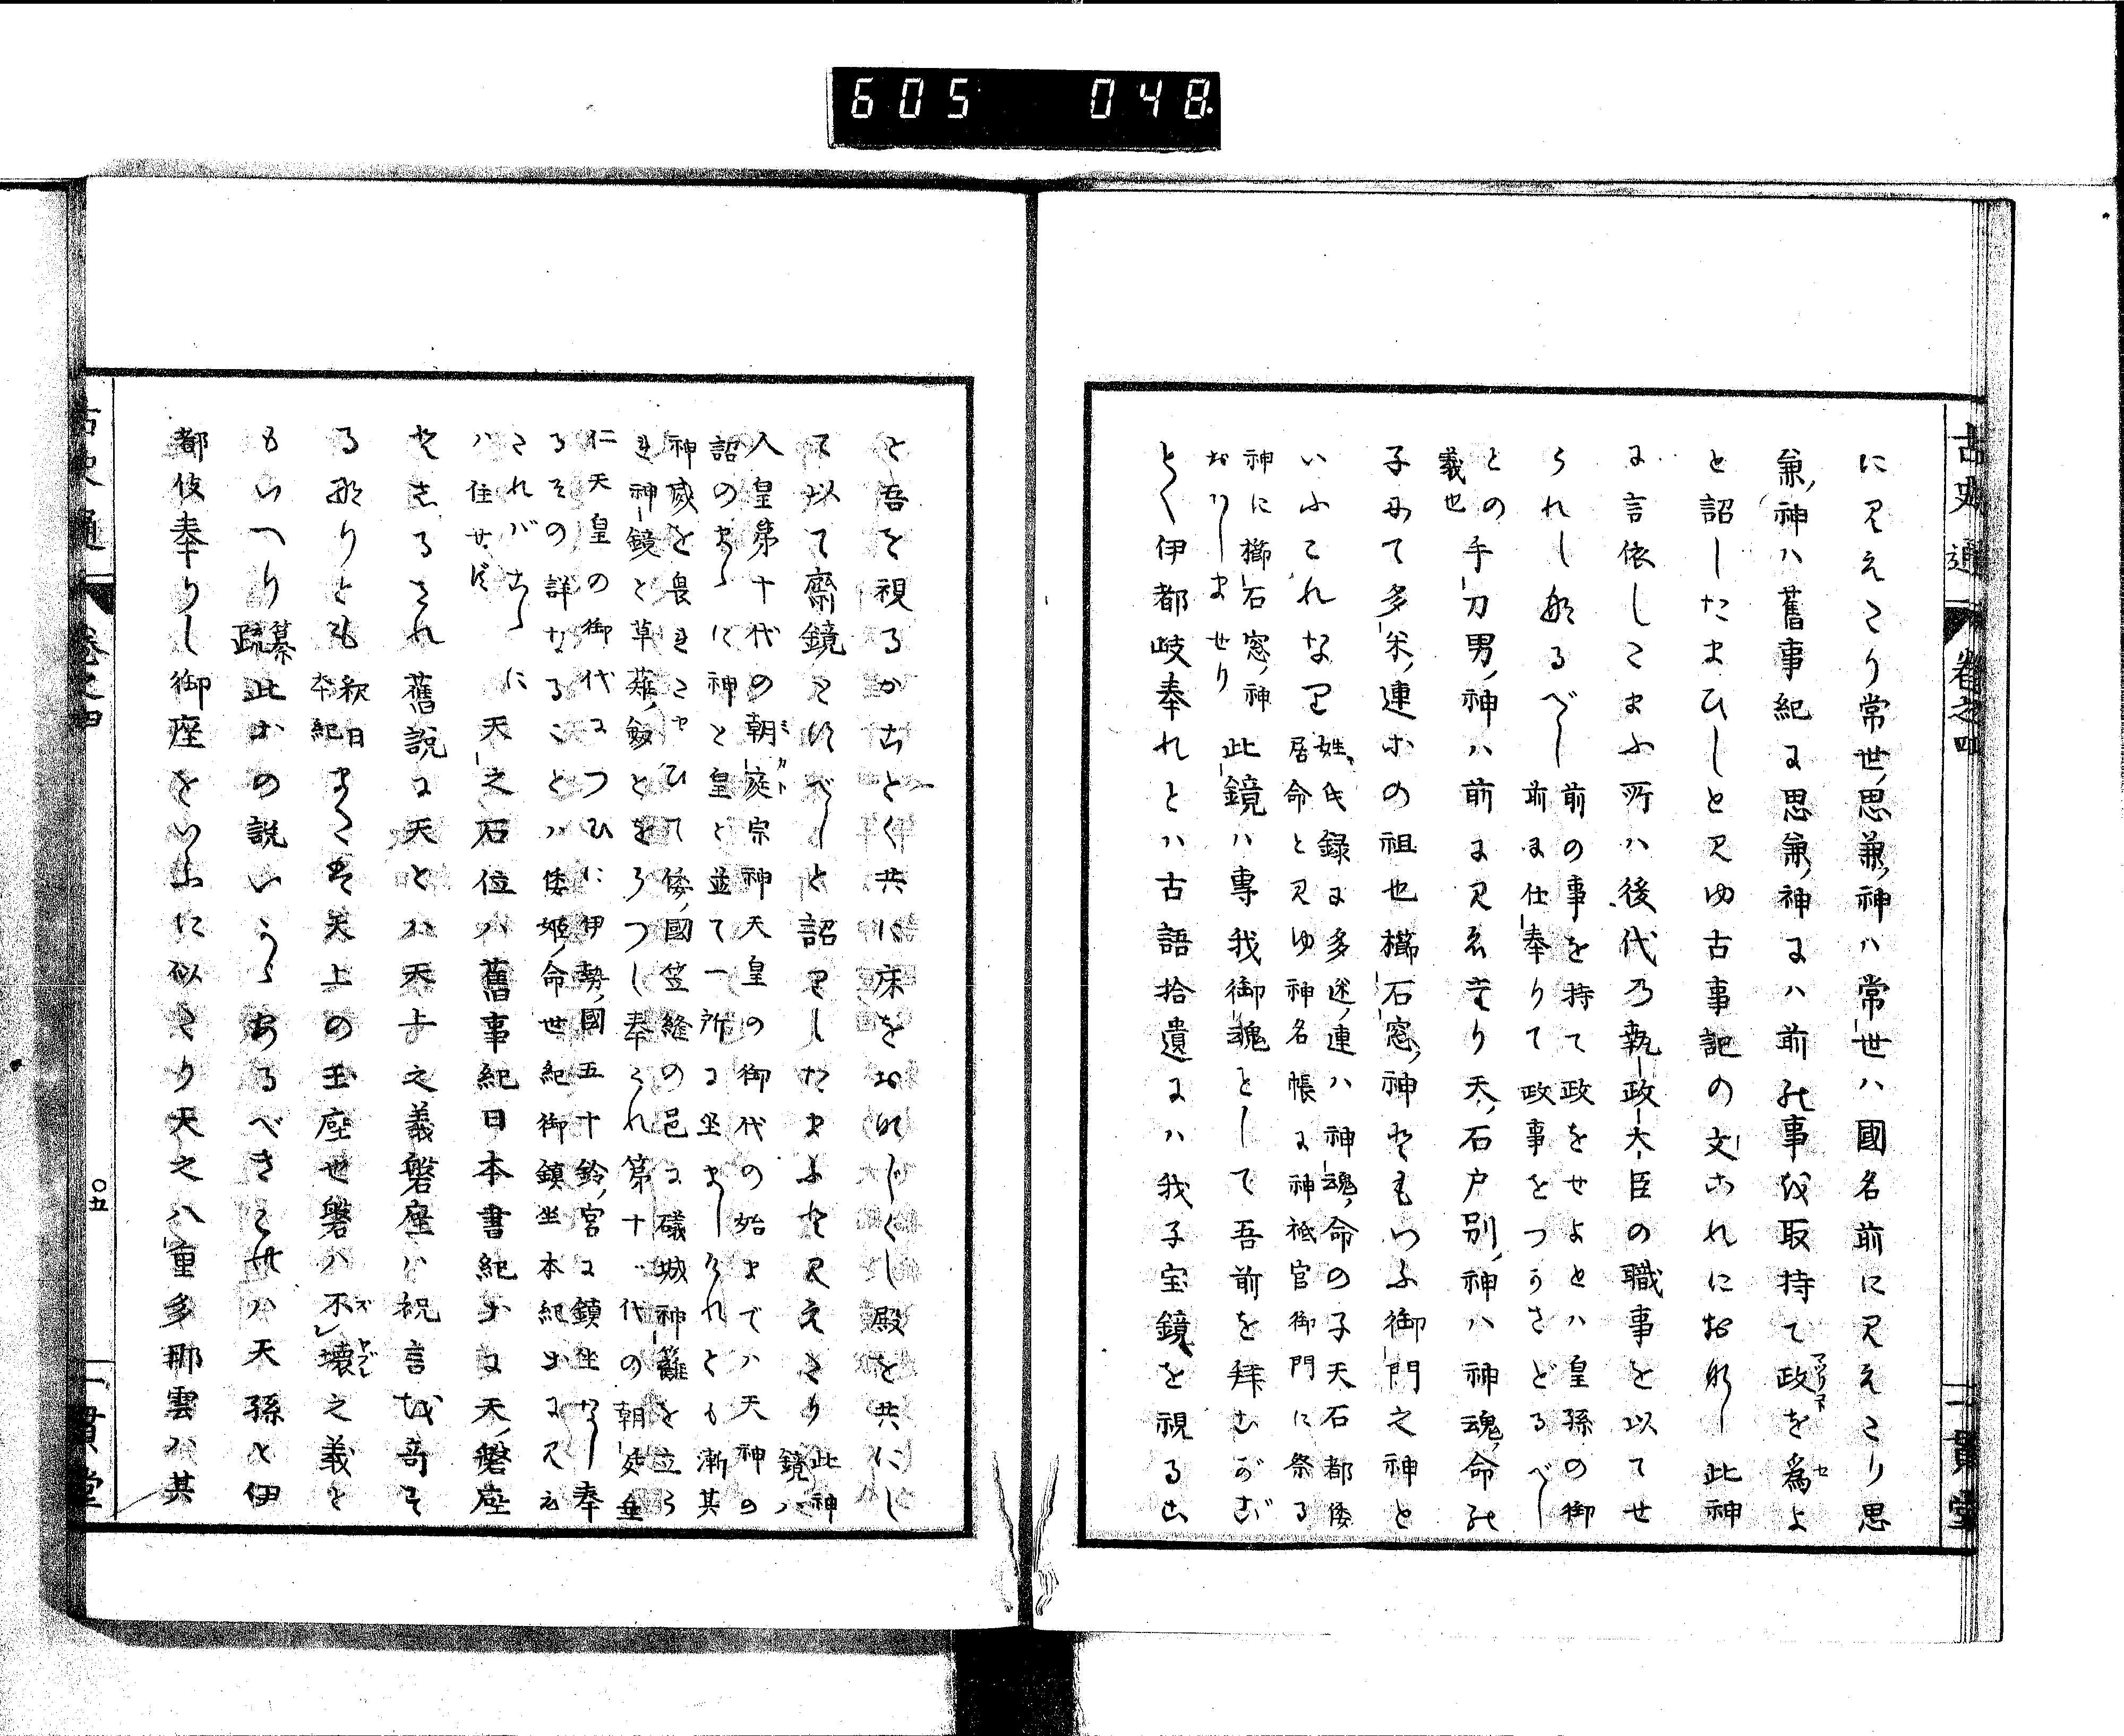 605 048
古史通 卷之四 一貫堂
に見えたり常世思兼神ハ常世ハ國名前に見えたり思
兼神ハ舊事紀に思兼神にハ前の事を取持て政を爲よ
と詔したまひしと見ゆ古事記の文これにおなし此神
に言依したまふ所ハ後代乃執政大臣の職事を以てせ
られし成るべし
前の事を持て政をせよとハ皇孫の御
前に仕奉りて政事をつかさどるべし
との
義也
手力男神ハ前に見えたり天石戸別神ハ神魂命の
子にて多米連等の祖也櫛石窓神そもいふ御門之神と
いふこれなり
姓氏録に多米連ハ神魂命の子天石都倭
居命と見ゆ神名帳に神祇官御門に祭る
神に櫛石窓神
おハしませり
此鏡ハ專我御魂として吾前を拜むがご
とく伊都岐奉れとハ古語拾遺にハ我子宝鏡を視るこ
と吾を視るかことく共に床をおなじくし殿を共にし
て以て齋鏡とすべしと詔りしたまふと見えたり
此神
鏡ハ
人皇第十代の朝庭宗神天皇の御代の始までハ天神の
詔のまゝに神と皇と並て一所に坐ましけれとも漸其
神威を畏きたまひて倭國笠縫の邑に磯城神籬を立ら
れ神鏡と草薙劔とをうつし奉られ第十一代の朝廷垂
仁天皇の御代につひに伊勢國五十鈴宮に鎮坐なし奉
るその詳なることハ倭姫命世紀御鎮坐本紀等に見え
されバこゝに
ハ住せず
天之石位ハ舊事紀日本書紀等に天磐座
としるされ舊説に天とハ天上之義磐座ハ祝言を奇す
る那りとも
釈日
本紀
またハ天上の玉座也磐ハ不壊之義と
もいへり
纂
疏
此等の説いかゝあるべきこれハ天孫と伊
都伎奉りし御座をいふに似たり天之八重多那雲ハ其
古史通 卷之四 〇五 一貫堂